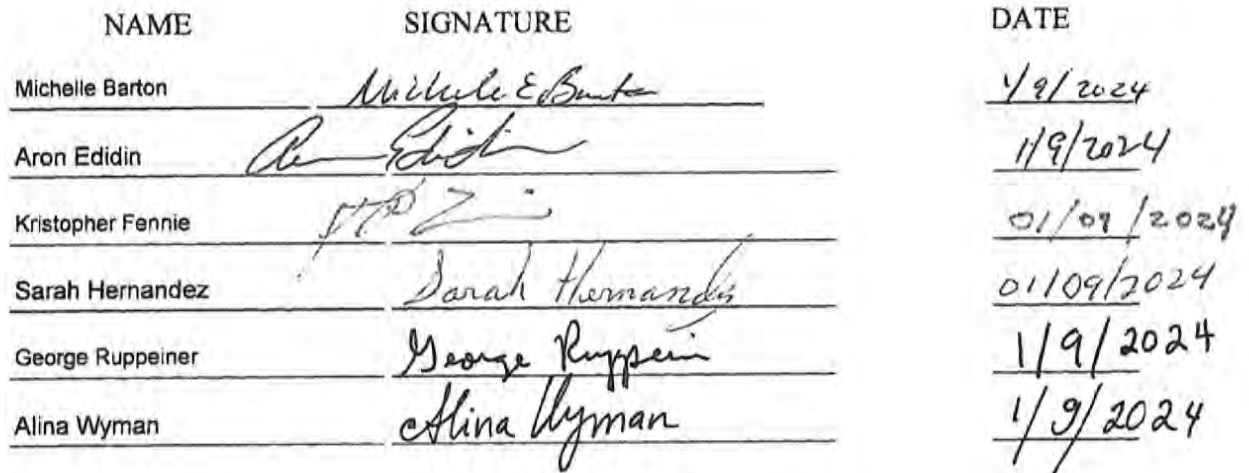 NAME SIGNATURE DATE
Michelle Barton Michele E. Barton 1/9/2024
Aron Edidin Aron Edidin 1/9/2024
Kristopher Fennie 01/09/2024
Sarah Hernandez Sarah Hernandez 01/09/2024
George Ruppeiner George Ruppein 1/9/2024
Alina Wyman Alina Wyman 1/9/2024